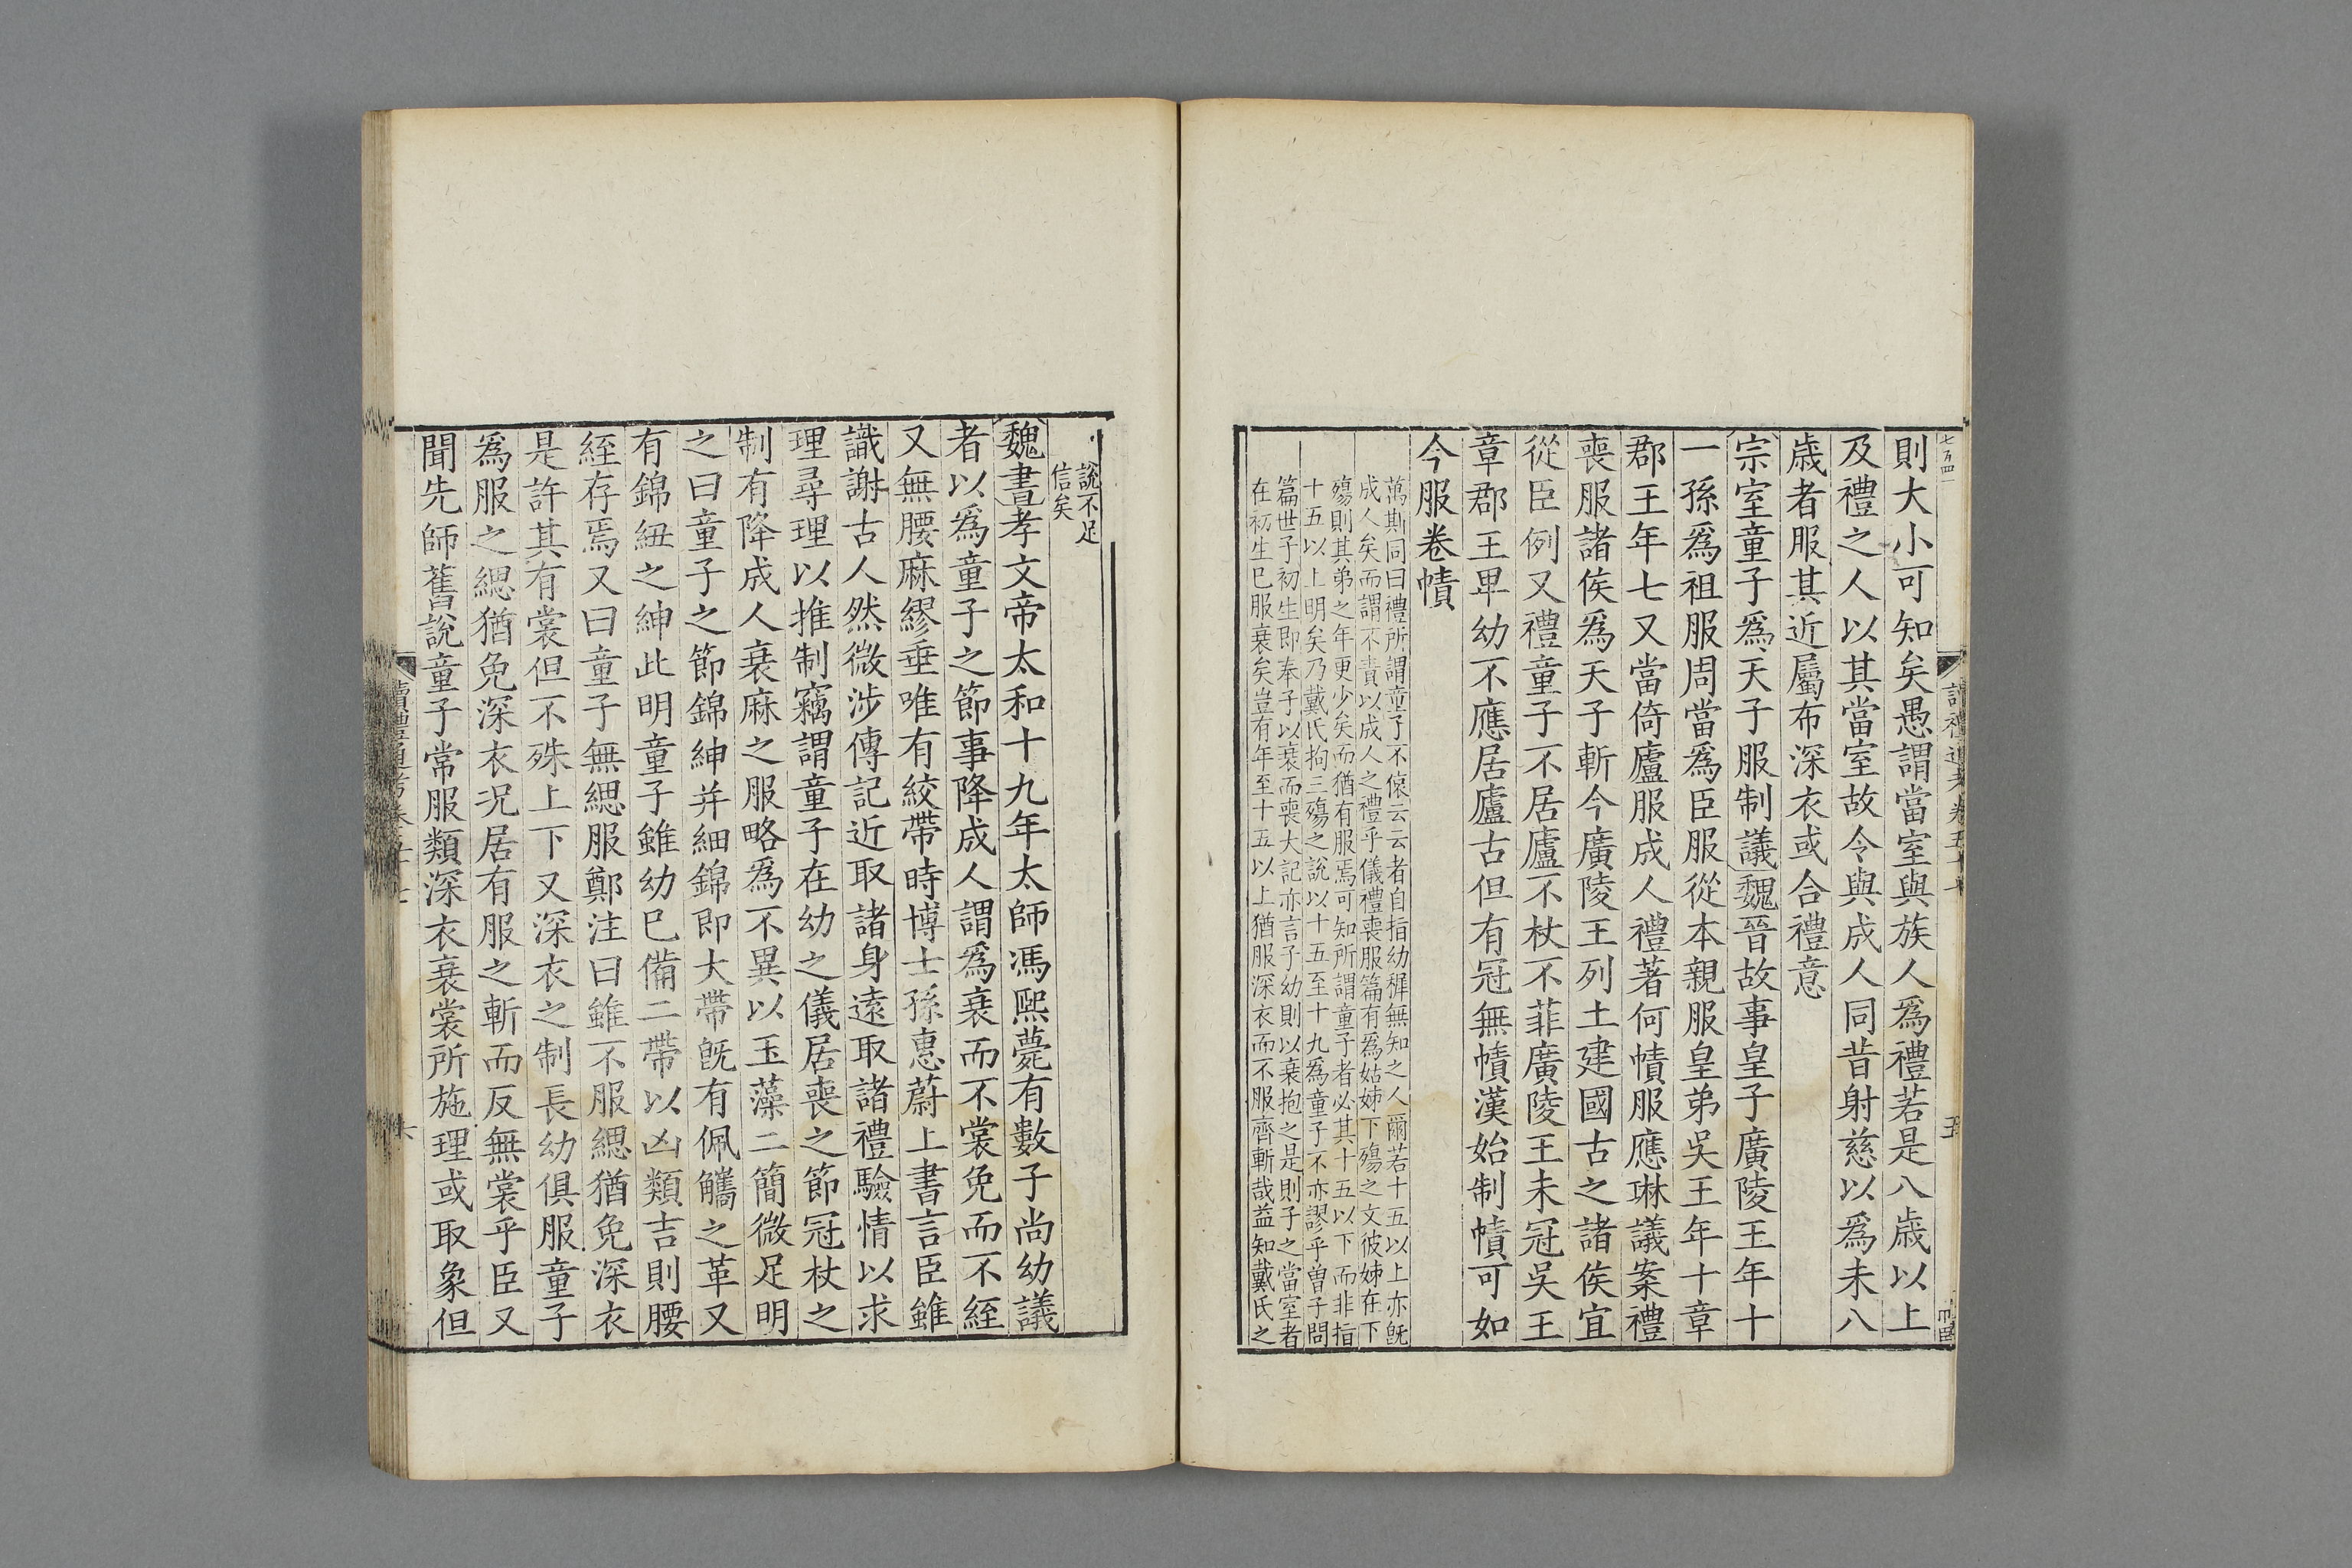 則大小可知矣愚謂當室與族人爲禮若是八歳以上
及禮之人以其當室故令與成人同昔射慈以爲未八
歳者服其近屬布深衣或合禮意
宗室童子爲天子服制議魏晉故事皇子廣陵王年十
一孫爲祖服周當爲臣服從本親服皇弟吳王年十章
郡王年七又當倚廬服成人禮著何幘服應琳議案禮
喪服諸侯爲天子斬今廣陵王列土建國古之諸侯宜
從臣例又禮童子不居廬不杖不菲廣陵王未冠吳王
章郡王卑幼不應居廬古但有冠無幘漢始制幘可如
今服卷幘
萬斯同曰禮所謂童子不偯云云者自指幼穉無知之人爾若十五以上亦旣
成人矣而謂不責以成人之禮乎儀禮喪服篇有爲姑姊下殤之文彼姊在下
殤則其弟之年更少矣而猶有服焉可知所謂童子者必其十五以下而非指
十五以上明矣乃戴氏拘三殤之說以十五至十九爲童子不亦謬乎曽子問
篇世子初生即奉子以衰而喪大記亦言子幼則以衰抱之是則子之當室者
在初生已服衰矣豈有年至十五以上猶服深衣而不服齊斬哉益知戴氏之
說不足
信矣
魏書孝文帝太和十九年太師馮熙薨有數子尚幼議
者以爲童子之節事降成人謂爲衰而不裳免而不絰
又無腰麻繆垂唯有絞帶時博士孫惠蔚上書言臣雖
識謝古人然微涉傳記近取諸身遠取諸禮驗情以求
理尋理以推制竊謂童子在幼之儀居喪之節冠杖之
制有降成人衰麻之服略爲不異以玉藻二簡微足明
之曰童子之節錦紳并細錦即大帶旣有佩觿之革又
有錦紐之紳此明童子雖幼已備二帶以凶類吉則腰
絰存焉又曰童子無緦服鄭注曰雖不服緦猶免深衣
是許其有裳但不殊上下又深衣之制長幼俱服童子
爲服之緦猶免深衣况居有服之斬而反無裳乎臣又
聞先師舊說童子常服類深衣衰裳所施理或取象但